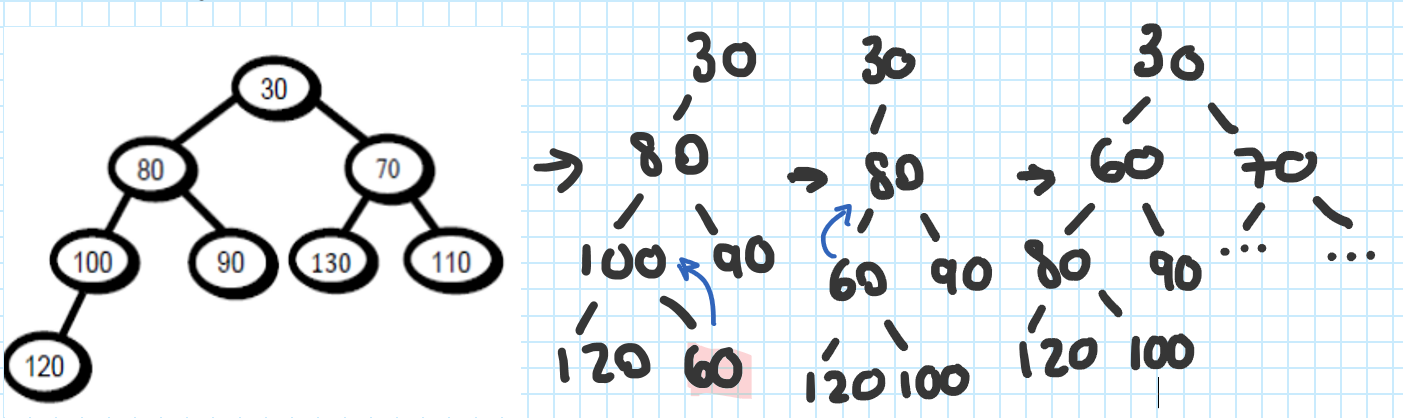 30
80 70
100 90 130 110
120
→ 30
80
100 90
120 60
→ 30
80
60 90
120 100
→ 30
60 70
80 90 ... ...
120 100